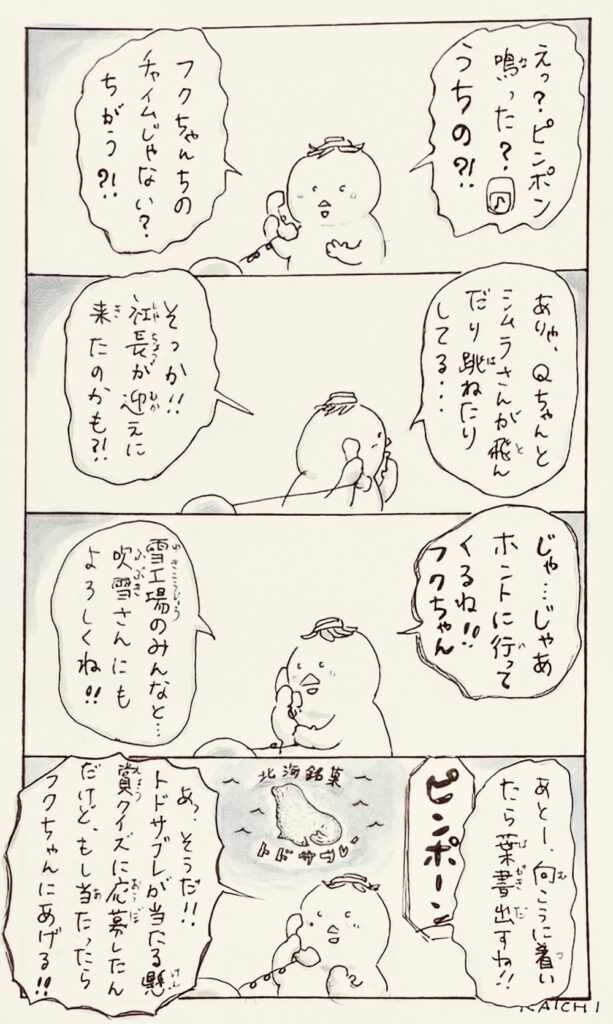 えっ?ピンポン
鳴った?
うちの?!
フクちゃんちの
チャイムじゃない?
ちがう?!
ありゃ、Qちゃんと
シムラさんが飛ん
だり跳ねたり
してる・・・
そっか!!
社長が迎えに
来たのかも?!
じゃ…じゃあ
ホントに行って
くるね!!
フクちゃん
雪工場のみんなと…
吹雪さんにも
よろしくね!!
あとー、向こうに着い
たら葉書出すね!!
ピンポーン
北海銘菓
トドサブレ
あっ、そうだ!!
トドサブレが当たる懸
賞クイズに応募したん
だけど、もし当たったら
フクちゃんにあげる!!
KAICHI